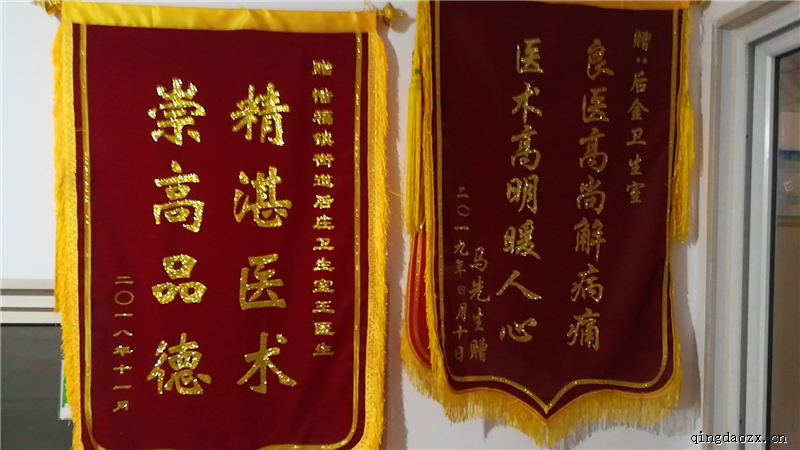 赠惜福镇街道后庄卫生室王医生
精湛医术
崇高品德
二〇一八年十一月
赠:后金卫生室
良医高尚解病痛
医术高明暖人心
马先生赠
二〇一九年四月十日
qingdaozx.cn